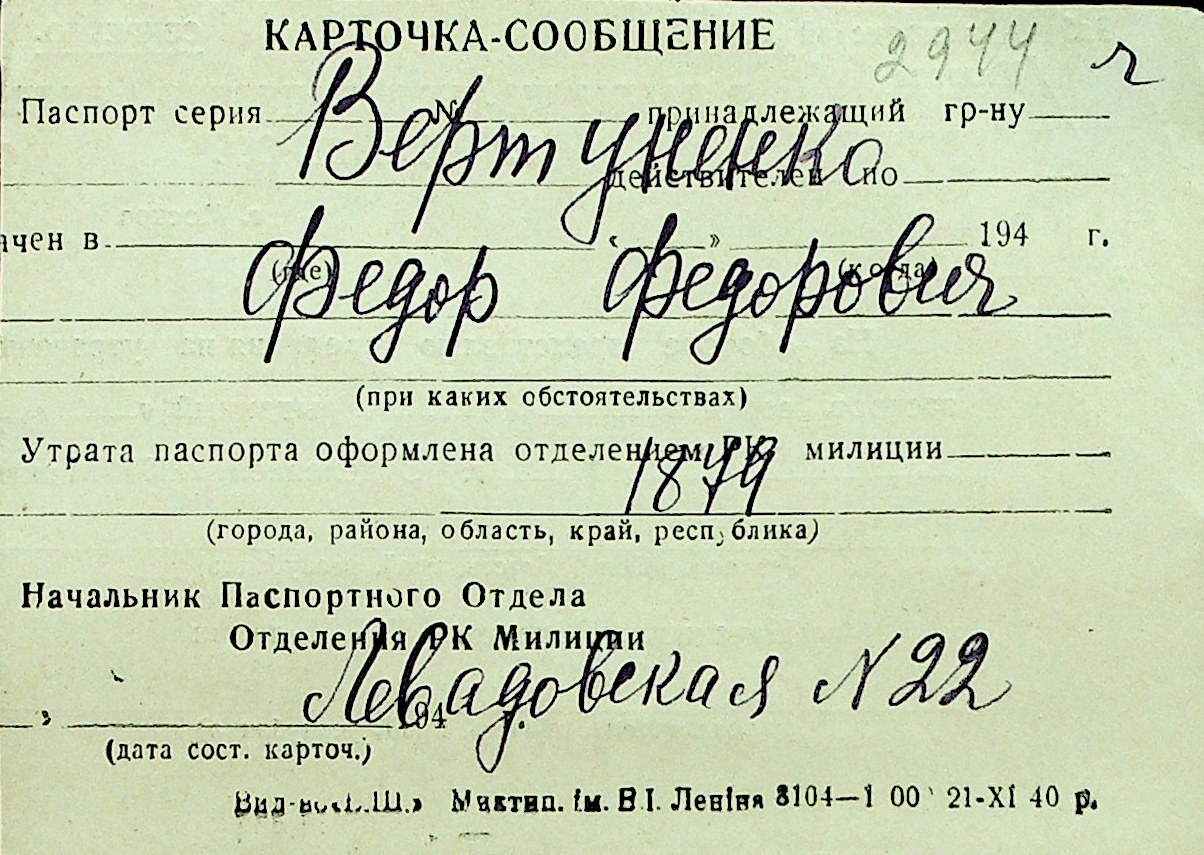 КАРТОЧКА-СООБЩЕНИЕ
2944 г
Паспорт серия № принадлежащий гр-ну
Вертуненко
действителен по
ачен в « » 194 г.
(где) (когда)
Федор Федорович
(при каких обстоятельствах)
Утрата паспорта оформлена отделением РК милиции
1879
(города, района, область, край, республика)
Начальник Паспортного Отдела
Отделения РК Милиции
Левадовская N 22
» 194 г.
(дата сост. карточ.)
Миктип. ім. В.І. Леніна 8104—1 00 21-XI 40 р.